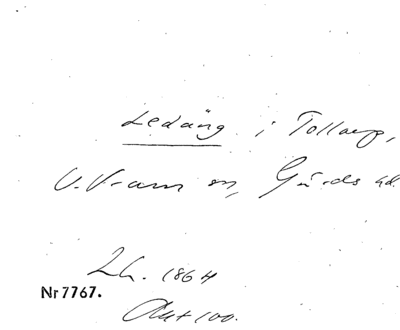 Ledäng i Tollarp,
V. Vram sn, Gärds hd.
Lh. 1864
Nr 7767.
Akt 100.